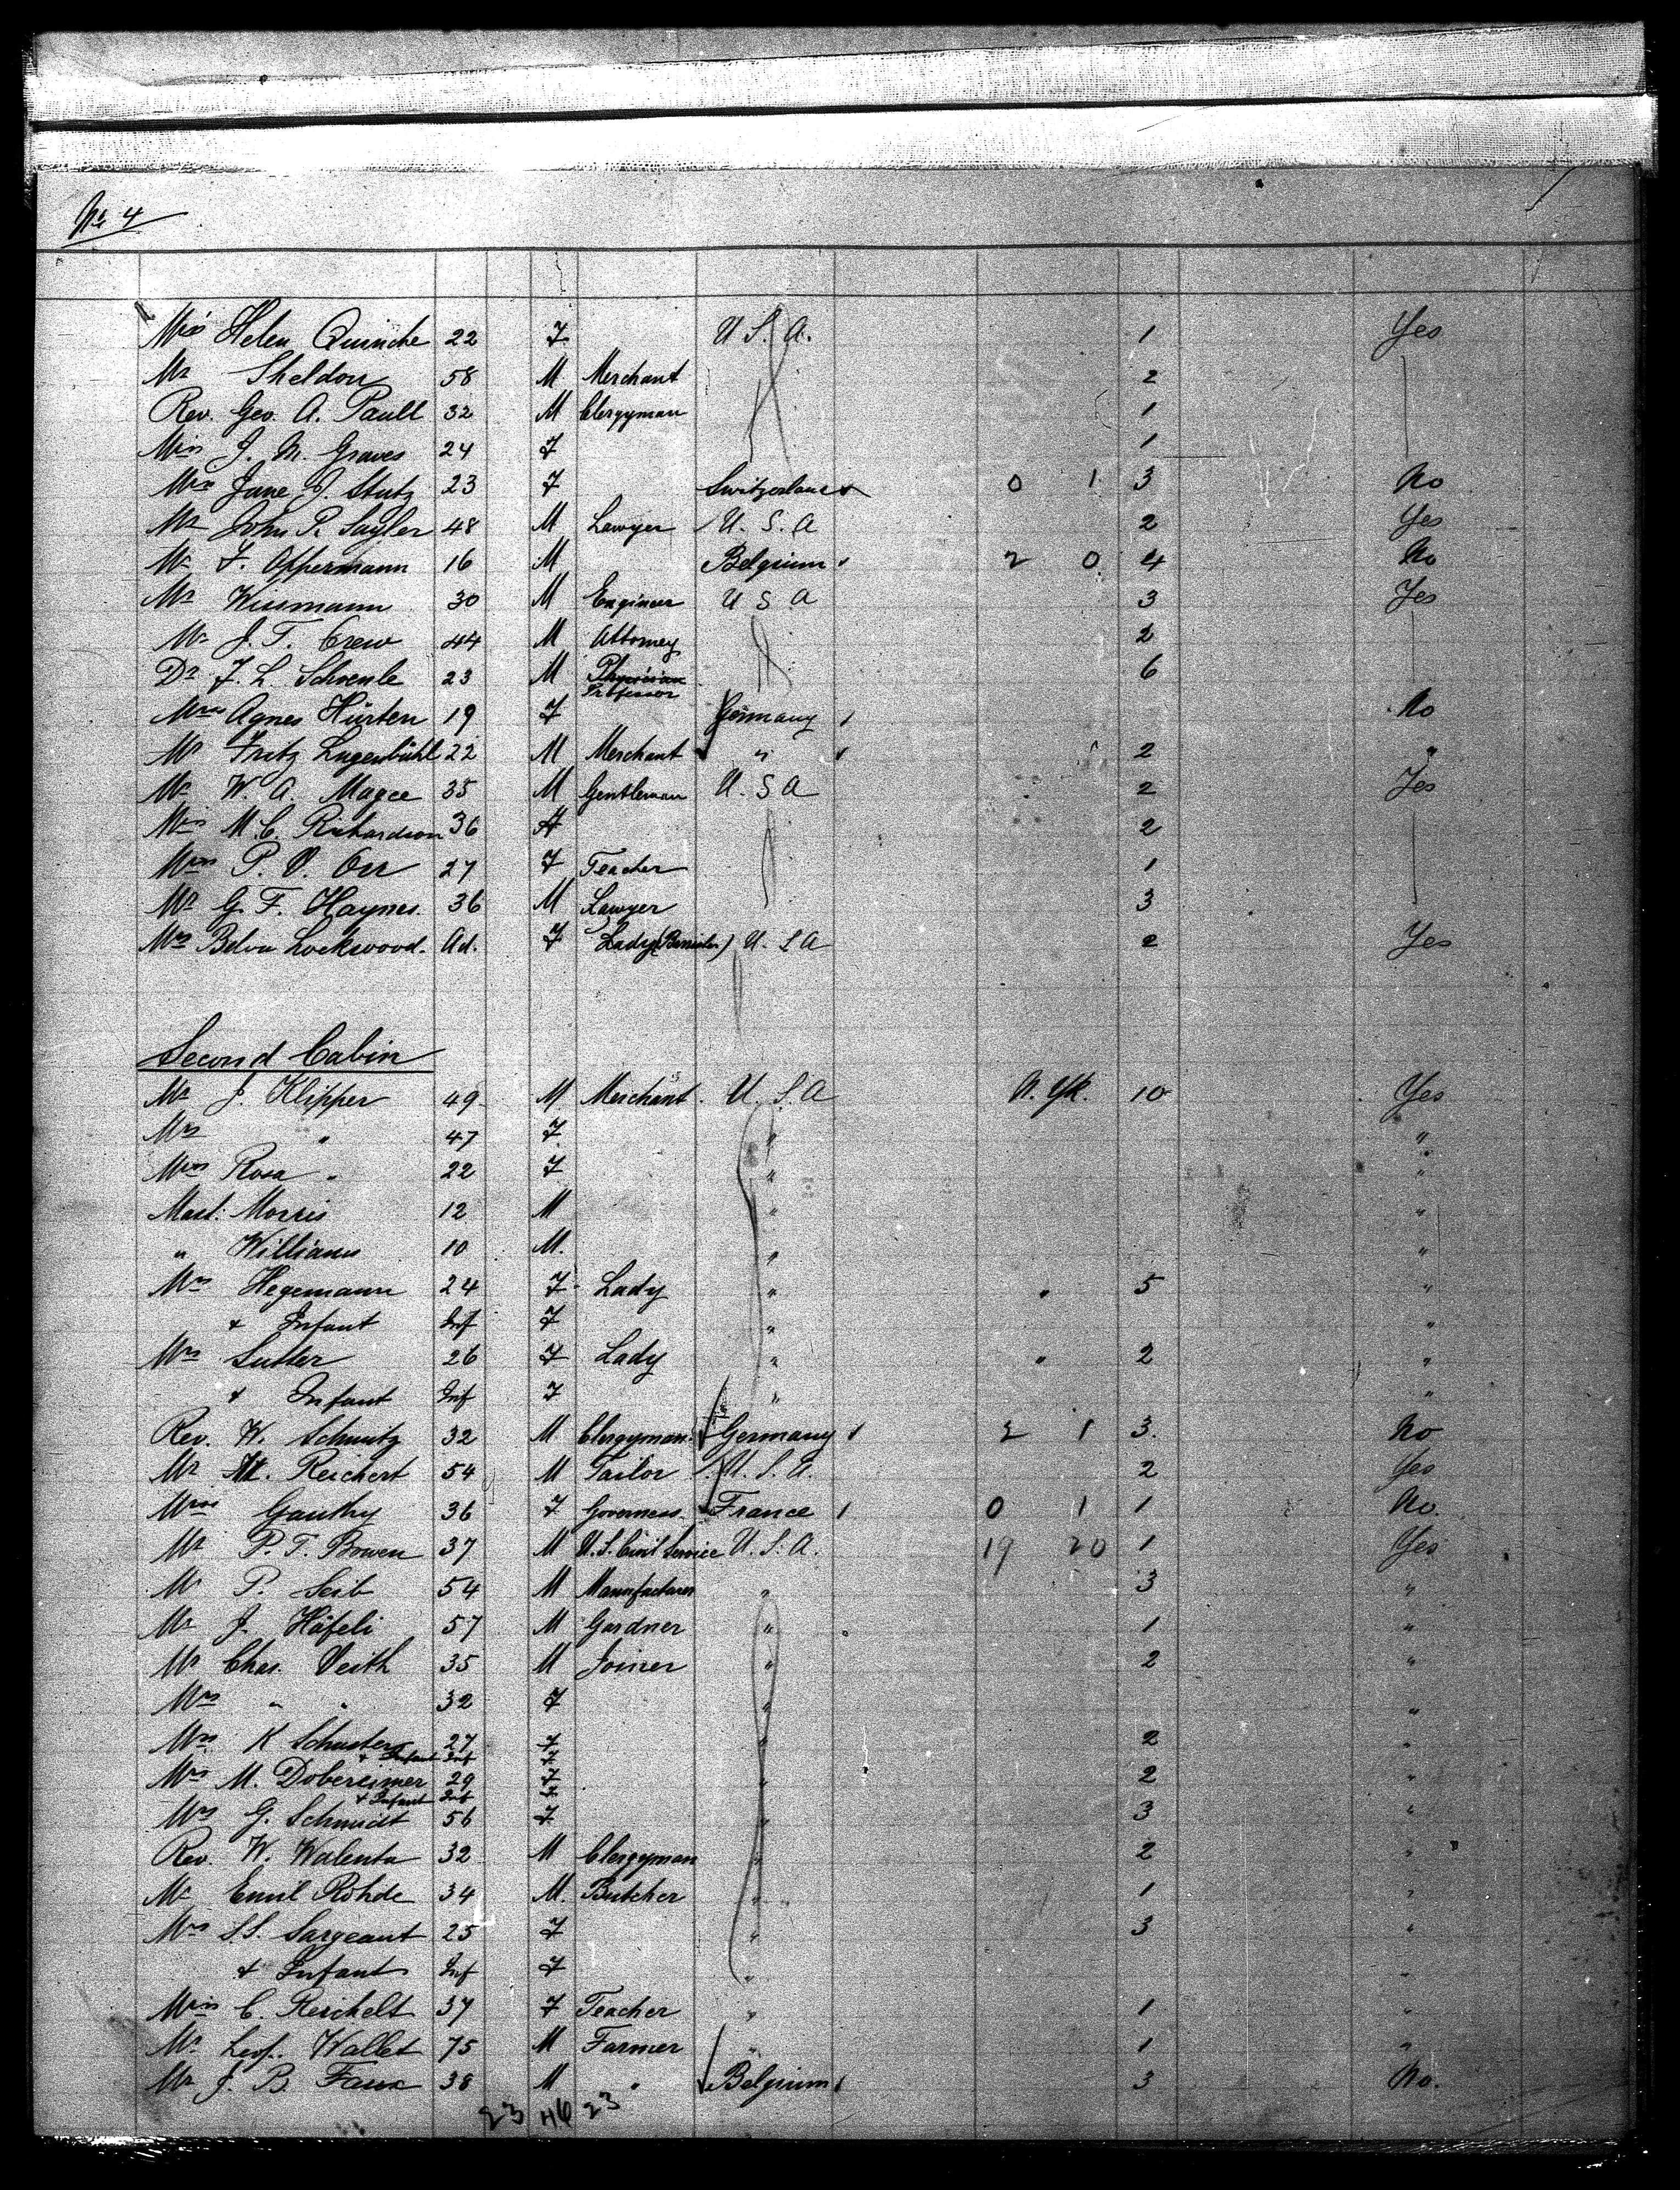 No 4
Miss Helen Quinche 22 F U.S.A. 1 Yes
Mr Sheldon 58 M Merchant 2
Rev. Geo. A. Paull 32 M Clergyman 1
Miss J. M. Graves 24 F 1
Miss Jane J. Stutz 23 F Switzerland 0 1 3 No
Mr John P. Sayler 48 M Lawyer U.S.A 2 Yes
Mr F. Offermann 16 M Belgium 2 0 4 No
Mr Wissmann 30 M Engineer U S A 3 Yes
Mr J. T. Crew 44 M Attorney 2
Dr F. L. Schoenle 23 M Physician 6
Professor
Miss Agnes Hürten 19 F Germany No
Mr Fritz Lugenbühl 22 M Merchant " 2 "
Mr W. A. Magee 35 M Gentleman U.S A 2 Yes
Miss M. C. Richardson 36 F 2
Miss P. V. Orr 27 F Teacher 1
Mr G. F. Haynes. 36 M Lawyer 3
Mrs Belva Lockwood. Ad. F Lady (Barrister) U.S A 2 Yes
Second Cabin
Mr J. Klipper 49 M Merchant U.S.A N. Yk. 10 Yes
Mrs " 47 F " "
Miss Rosa " 22 F " "
Mast: Morris 12 M " "
" William 10 M. " "
Mrs Hegemann 24 F Lady " " 5 "
+ Infant Inf F " "
Mrs Sutter 26 F Lady " " 2 "
+ Infant Inf F " "
Rev. W. Schmitz 32 M Clergyman. Germany 2 1 3. No
Mr M. Reichert 54 M Tailor U.S.A. 2 Yes
Miss Gauthy 36 F Governess. France 0 1 1 No.
Mr P. T. Bowen 37 M U.S. Civil Service U.S.A. 19 20 1 Yes
Mr P. Seib 54 M Manufacturer " 3 "
Mr J. Häfeli 57 M Gardner " 1 "
Mr Chas. Veith 35 M Joiner " 2 "
Mrs " " 32 F " "
Mrs K Schuster 27 F " 2 "
+ Infant Inf F
Mrs M. Dobereimer 29 F " 2 "
+ Infant Inf F
Mrs G. Schmidt 56 F " 3 "
Rev. W. Walenta 32 M Clergyman " 2 "
Mr Emil Rohde 34 M. Butcher " 1 "
Mrs S.S. Sargeant 25 F " 3 "
+ Infant Inf F " "
Miss C. Reichelt 37 F Teacher " 1 "
Mr Leop. Wallet 75 M Farmer " 1 "
Mr J. B. Faux 38 M " Belgium 3 No.
23 46 23